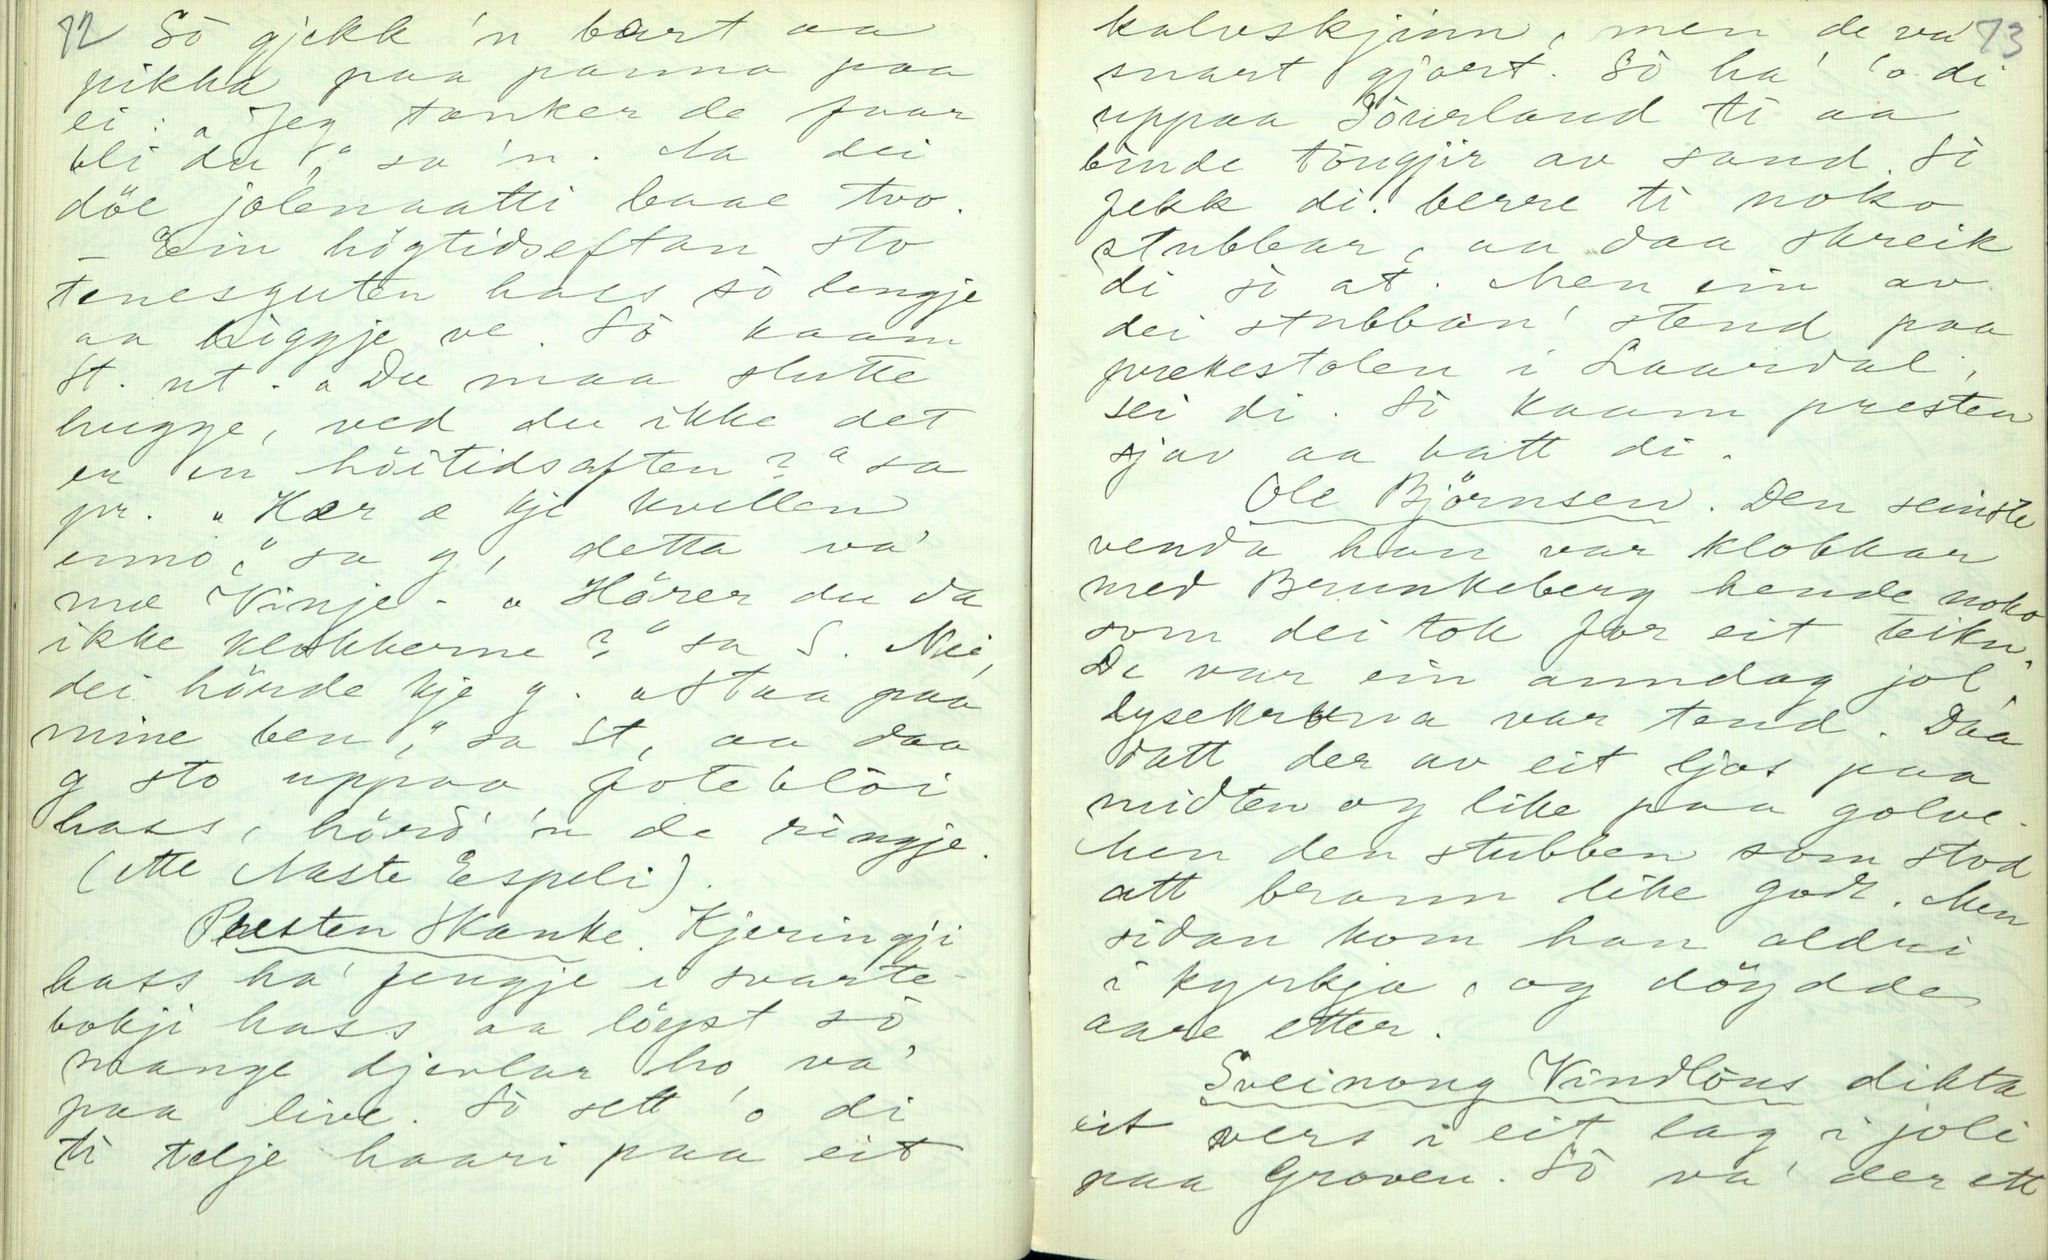 72
Sò gjekk 'n burt aa
pikka paa panna paa
ei: „Jeg tænker de faar
bli du," sa 'n. Aa dei
döe jolenaatti baae tvo.
– Ein högtidseftan sto
tenesguten hass sò lengje
aa higgje ve. Sò kaam
St. ut. „Du maa slutte
hugge, ved du ikke det
er en höitidsaften?" sa
pr. „Her æ kje kvellen
ennò," sa g, detta va'
mæ Vinje. „Hörer du da
ikke klokkerne?" sa S. Nei,
dei hörde kje g. „Staa paa
mine ben," sa St, aa daa
g sto uppaa foteblòi
hass, hörd' 'n de ringje.
(ette Aaste Espeli).
Presten Skanke. Kjeringji
hass ha' fengje i svarte-
bokji hass aa löyst sò
mange djevlar ho va'
paa live. Sò sett 'o di
ti telje haari paa eit
73
kalvskjinn, men de va'
snart gjort. Sò ha' 'o di
uppaa Sòurland ti aa
binde tòugjir av sand. Sò
fekk di berre ti noko
stubbar, aa daa skreik
di sò at. Men ein av
dei stubban' stend paa
prekestolen i Laardal,
sei di. Sò kaam presten
sjav aa batt di.
Ole Björnsen. Den seinste
venda han var klokkar
med Brunkeberg hende noko
som dei tok for eit teikn.
De var ein anndag jol,
lysekruna var tend. Daa
datt der av eit ljos paa
midten og like paa golve.
Men den stubben som stod
att brann like godt. Men
sidan kom han aldri
i kyrkja, og döydde
aare etter.
Sveinong Vindlöus dikta
eit vers i eit lag i joli
paa Groven. Sò va' der ett